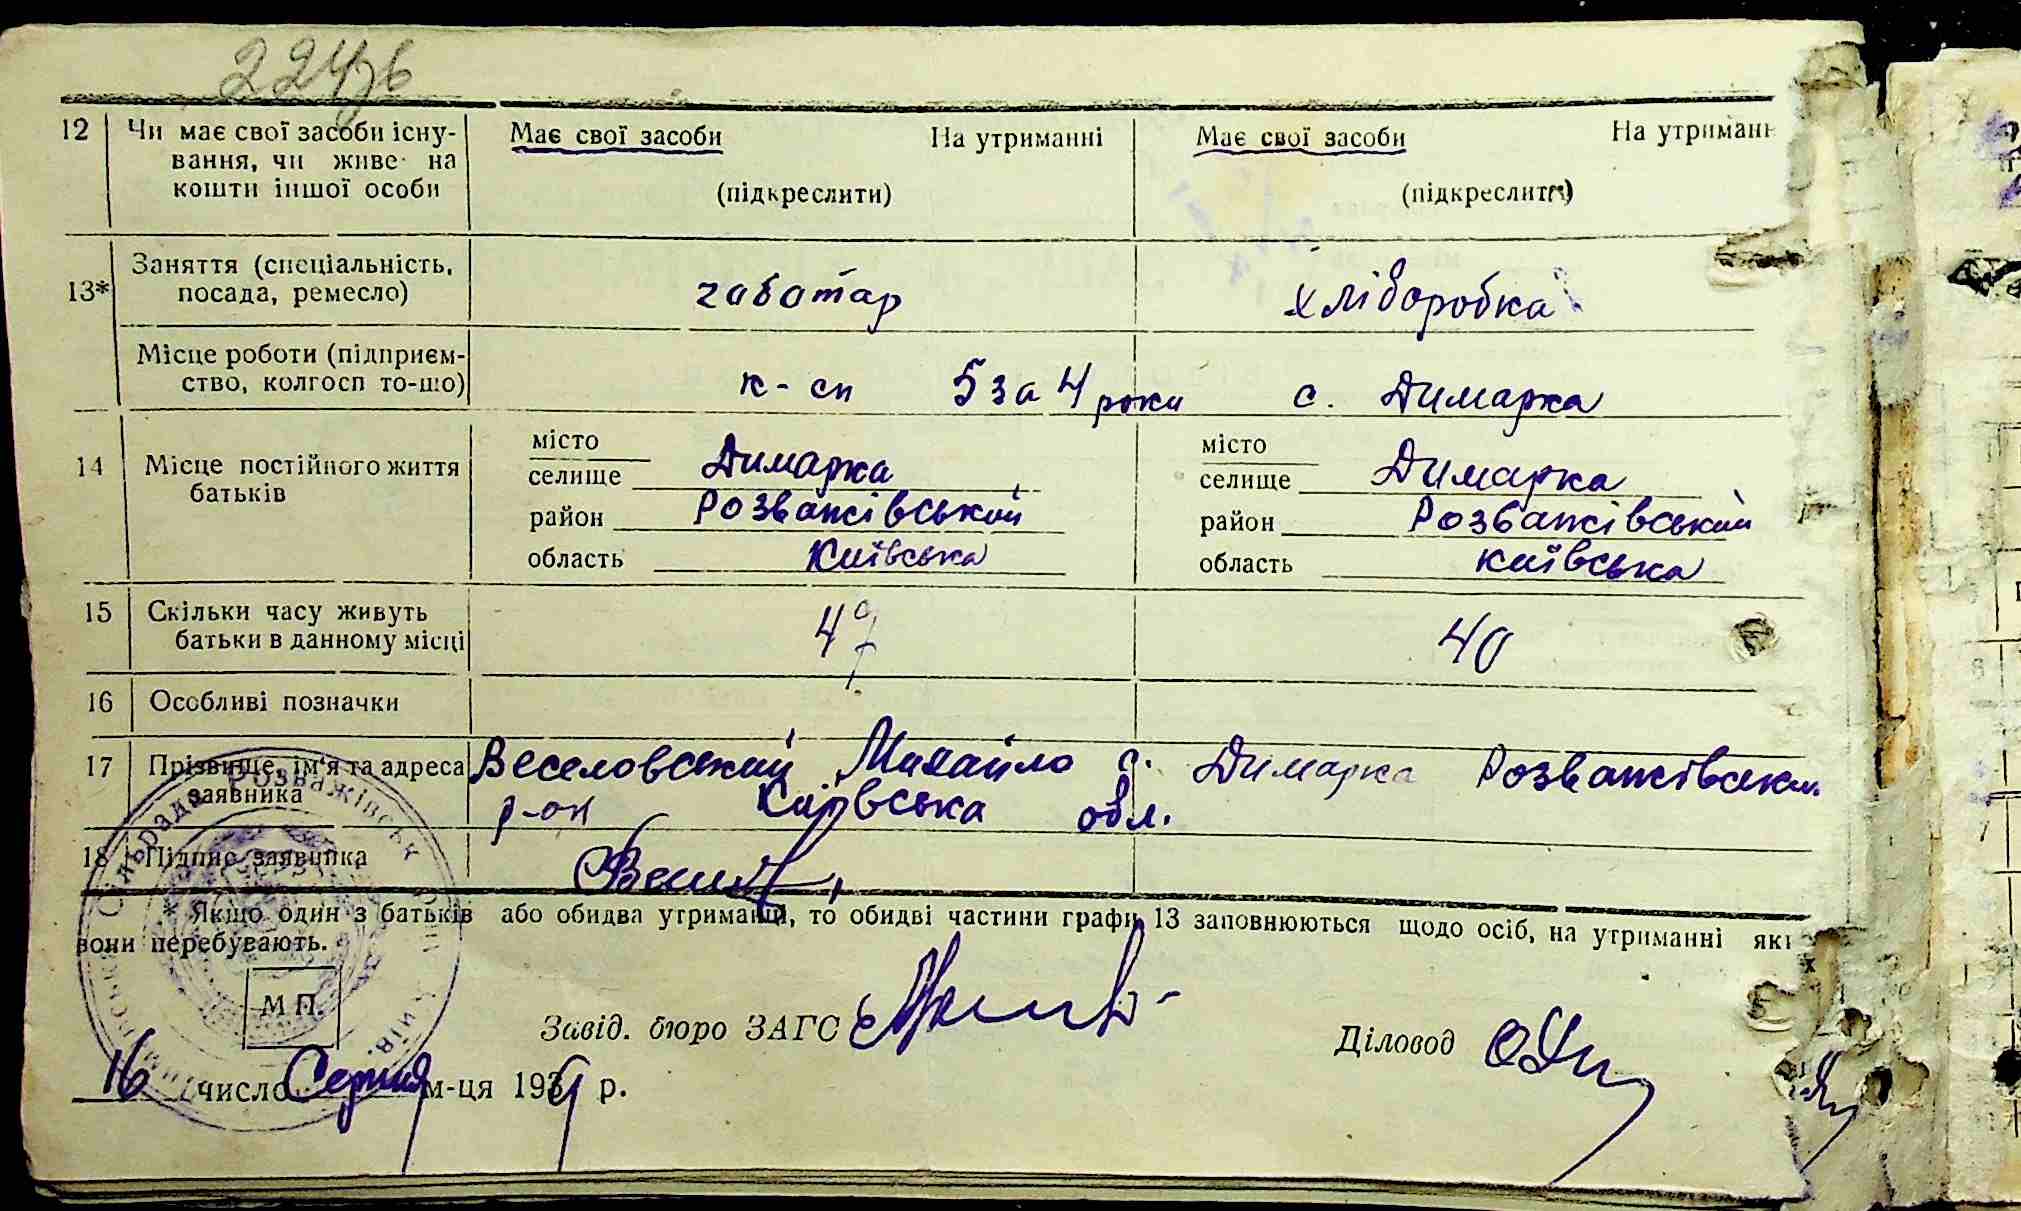 224зв
12 Чи має свої засоби існу- Має свої засоби На утриманні Має свої засоби На утриманн
вання, чи живе на
кошти іншої особи (підкреслити) (підкреслити)
13* Заняття (спеціальність,
посада, ремесло) чаботар хліборобка
Місце роботи (підприєм-
ство, колгосп то-що) к-сп 5 за 4 роки с. Димарка
14 Місце постійного життя
батьків
місто місто
селище Димарка селище Димарка
район Розважівський район Розважівський
область Київська область Київська
15 Скільки часу живуть
батьки в данному місці 49 40
16 Особливі позначки
17 Прізвище, ім'я та адреса Веселовський Михайло с. Димарка Розважівськ.
заявника р-он Київська обл.
18 Підпис заявника
* Якщо один з батьків або обидва утриманці, то обидві частини графи 13 заповнюються щодо осіб, на утриманні яки
х вони перебувають.
М П.
Завід. бюро ЗАГС Діловод
16 число Серпня м-ця 1939 р.